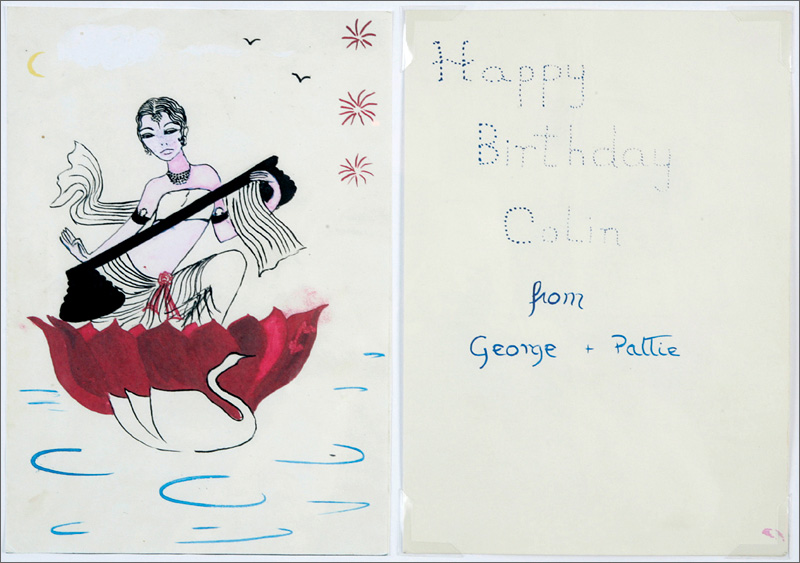 Happy
Birthday
Colin
from
George + Pattie